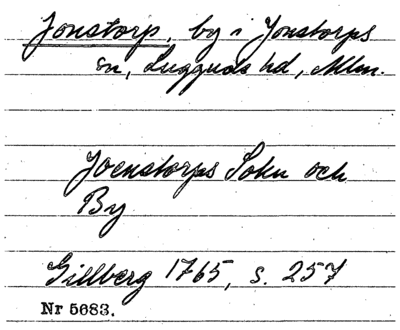 Jonstorp, by i Jonstorps
sn, Luggude hd, Mlm.
Joenstorps Sokn och
By
Gillberg 1765, s. 257
Nr 5683.